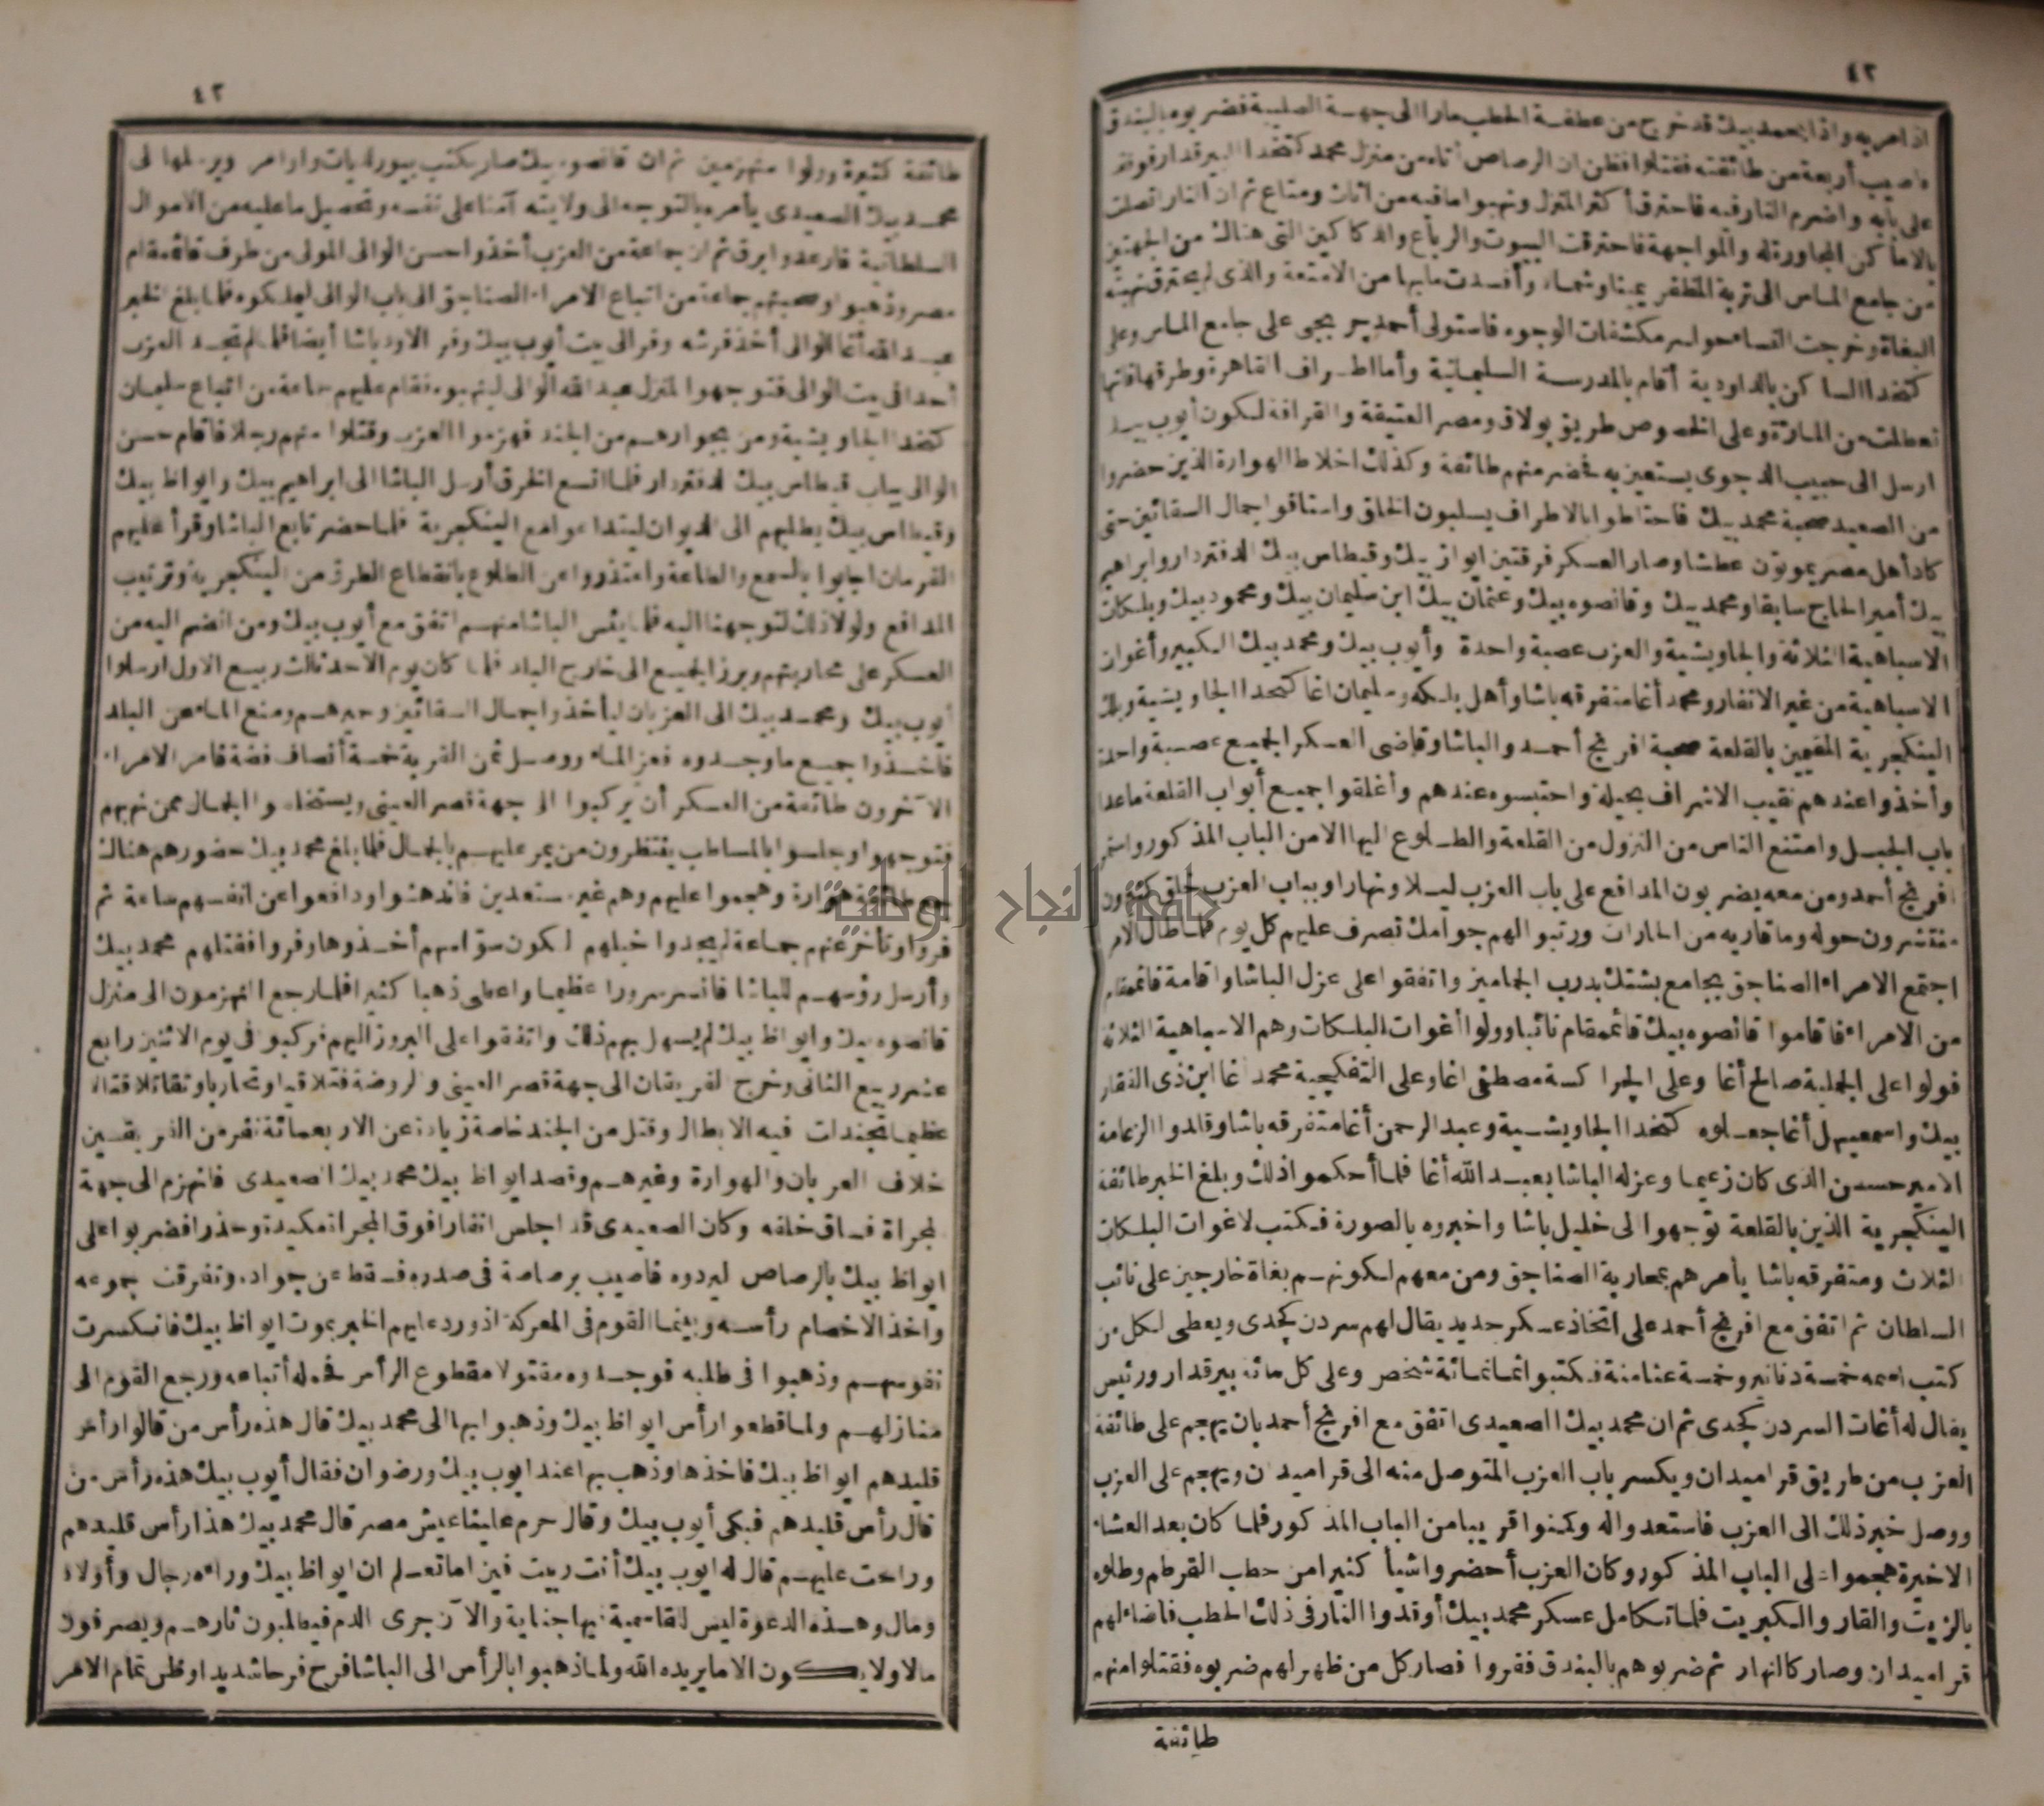 ٤٢
اذا هم به واذا بمحمد بيك قد خرج من عطفة الحطب مارا الى جهة الصليبة فضربوه بالبندق
فاصيب أربعة من طائفته فقتلوا فظن ان الرصاص أتاه من منزل محمد كتخدا البيرقدار فوقف
على بابه واضرم النار فيه فاحترق أكثر المنزل ونهبوا ما فيه من اثاث ومتاع ثم ان النار اتصلت
بالاماكن المجاورة له والمواجهة فاحترقت البيوت والرباع والدكاكين التى هناك من الجهتين
من جامع الماس الى تربة المظفر يمينا وشمالا وأفسدت ما بها من الامتعة والذى لم يحترق نهبته
البغاة وخرجت النساء حواسر مكشفات الوجوه فاستولى أحمد جربجى على جامع الماس وعلى
كتخدا الساكن بالداودية أقام بالمدرسة السليمانية وأما اطراف القاهرة وطرقها فانها
تعطلت من المارة وعلى الخصوص طريق بولاق ومصر العتيقة والقرافة لكون أيوب بيك
ارسل الى حبيب الدجوى يستعين به فحضر منهم طائفة وكذلك اخلاط الهوارة الذين حضروا
من الصعيد صحبة محمد بيك فاحتاطوا بالاطراف يسلبون الخلق واستاقوا جمال السقائين حتى
كاد أهل مصر يموتون عطشا وصار العسكر فرقتين ايواز بيك وقيطاس بيك الدفتردار وابراهيم
بيك أمير الحاج سابقا ومحمد بيك وقانصوه بيك وعثمان بيك ابن سليمان بيك ومحمود بيك وبلكات
الاسباهية الثلاثة والجاويشية والعزب عصبة واحدة وأيوب بيك ومحمد بيك الكبير وأغوات
الاسباهية من غير الانفار ومحمد أغا متفرقه باشا وأهل بلكه وسليمان اغا كتخدا الجاويشية وبلك
الينكجرية المقيمين بالقلعة صحبة افرنج أحمد والباشا وقاضى العسكر الجميع عصبة واحدة
وأخذوا عندهم نقيب الاشراف بحيلة واحتبسوه عندهم وأغلقوا جميع أبواب القلعة ماعدا
باب الجبل وامتنع الناس من النزول من القلعة والطلوع اليها الا من الباب المذكور واستمر
افرنج أحمد ومن معه يضربون المدافع على باب العزب ليلا ونهارا وبباب العزب خلق كثيرون
منتشرون حوله وما قاربه من الحارات ورتبوا لهم جوامك تصرف عليهم كل يوم فلما طال الامر
اجتمع الامراء الصناجق بجامع بشتك بدرب الجماميز واتفقوا على عزل الباشا واقامة قائمقام
من الامراء فاقاموا قانصوه بيك قائمقام نائبا وولوا أغوات البلكات وهم الاسباهية الثلاثة
فولوا على الجملية صالح أغا وعلى الجراكسة مصطفى اغا وعلى التفكجية محمد اغا ابن ذى الفقار
بيك واسمعيل أغا جعلوه كتخدا الجاويشية وعبد الرحمن أغا متفرقه باشا وقلدوا الزعامة
الامير حسن الذى كان زعيما وعزله الباشا بعبد الله أغا فلما أحكموا ذلك وبلغ الخبر طائفة
الينكجرية الذين بالقلعة توجهوا الى خليل باشا واخبروه بالصورة فكتب لاغوات البلكات
الثلاث ومتفرقه باشا يأمرهم بمحاربة الصناجق ومن معهم لكونهم بغاة خارجين على نائب
السلطان ثم اتفق مع افرنج أحمد على اتخاذ عسكر جديد يقال لهم سردن كجدى ويعطى لكل من
كتب اسمه خمسة دنانير وخمسة عثامنة فكتبوا ثمانمائة شخص وعلى كل مائة بيرقدار ورئيس
يقال له أغات السردن كجدى ثم ان محمد بيك الصعيدى اتفق مع افرنج أحمد بان يهجم على طائفة
العزب من طريق قراميدان ويكسر باب العزب المتوصل منه الى قراميدان ويهجم على العزب
ووصل خبر ذلك الى العزب فاستعدوا له وكمنوا قريبا من الباب المذكور فلما كان بعد العشاء
الاخيرة هجموا على الباب المذكور وكان العزب أحضروا شيأ كثيرا من حطب القرطم وطلوه
بالزيت والقار والكبريت فلما تكامل عسكر محمد بيك أوقدوا النار فى ذلك الحطب فاضاء لهم
قراميدان وصار كالنهار ثم ضربوهم بالبندق ففروا فصار كل من ظهر لهم ضربوه فقتلوا منهم
طائفة
٤٣
طائفة كثيرة وولوا منهزمين ثم ان قانصوه بيك صار يكتب بيورلديات واوامر ويرسلها الى
محمد بيك الصعيدى يأمره بالتوجه الى ولايته آمنا على نفسه وتحصيل ما عليه من الاموال
السلطانية فارعد وابرق ثم ان جماعة من العزب أخذوا حسن الوالى المولى من طرف قائمقام
مصر وذهبوا وصحبتهم جماعة من اتباع الامراء الصناجق الى باب الوالى ليملكوه فلما بلغ الخبر
عبد الله أغا الوالى أخذ فرشه وفر الى بيت أيوب بيك وفر الاودباشا أيضا فلما لم تجد العزب
أحدا فى بيت الوالى فتوجهوا لمنزل عبد الله الوالى لينهبوه فقام عليهم جماعة من اتباع سليمان
كتخدا الجاويشية ومن بجوارهم من الجند فهزموا العزب وقتلوا منهم رجلا فاقام حسن
الوالى بباب قيطاس بيك الدفتردار فلما اتسع الخرق أرسل الباشا الى ابراهيم بيك وايواظ بيك
وقيطاس بيك يطلبهم الى الديوان ليتداعوا مع الينكجرية فلما حضر تابع الباشا وقرأ عليهم
الفرمان اجابوا بالسمع والطاعة واعتذروا عن الطلوع بانقطاع الطرق من الينكجرية وترتيب
المدافع ولولا ذلك لتوجهنا اليه فلما يئس الباشا منهم اتفق مع أيوب بيك ومن انضم اليه من
العسكر على محاربتهم وبرز الجميع الى خارج البلد فلما كان يوم الاحد ثالث ربيع الاول ارسلوا
أيوب بيك ومحمد بيك الى العزبان ليأخذوا جمال السقائين وحميرهم ومنع الماء عن البلد
فاخذوا جميع ما وجدوه فعز الماء ووصل ثمن القربة خمسة أنصاف فضة فامر الامراء
الآخرون طائفة من العسكر أن يركبوا الى جهة قصر العينى ويستخلصوا الجمال ممن نهبهم
فتوجهوا وجلسوا بالمساطب ينتظرون من يمر عليهم بالجمال فلما بلغ محمد بيك حضورهم هناك
جمع طائفة هوارة وهجموا عليهم وهم غير مستعدين فاندهشوا ودافعوا عن انفسهم ساعة ثم
فروا وتأخر عنهم جماعة لم يجدوا خيلهم لكون سواسهم أخذوها وفروا فقتلهم محمد بيك
وأرسل رؤسهم للباشا فانسر سرورا عظيما واعطى ذهبا كثيرا فلما رجع المنهزمون الى منزل
قانصوه بيك وايواظ بيك لم يسهل بهم ذلك واتفقوا على البروز اليهم فركبوا فى يوم الاثنين رابع
عشر ربيع الثانى وخرج الفريقان الى جهة قصر العينى والروضة فتلاقيا وتحاربا وتقاتلا قتالا
عظيما تجندلت فيه الابطال وقتل من الجند خاصة زيادة عن الاربعمائة نفر من الفريقين
خلاف العربان والهوارة وغيرهم وقصد ايواظ بيك محمد بيك الصعيدى فانهزم الى جهة
المجراة فساق خلفه وكان الصعيدى قد اجلس انفارا فوق المجراة مكيدة وحذرا فضربوا على
ايواظ بيك بالرصاص ليردوه فاصيب برصاصة فى صدره فسقط عن جواده وتفرقت جموعه
واخذ الاخصام رأسه وبينما القوم فى المعركة اذ ورد عليهم الخبر بموت ايواظ بيك فانكسرت
نفوسهم وذهبوا فى طلبه فوجدوه مقتولا مقطوع الرأس فحمله أتباعه ورجع القوم الى
منازلهم ولما قطعوا رأس ايواظ بيك وذهبوا بها الى محمد بيك قال هذه رأس من قالوا رأس
قليدهم ايواظ بيك فاخذها وذهب بها عند ايوب بيك ورضوان فقال أيوب بيك هذه رأس من
قال رأس قليدهم فبكى أيوب بيك وقال حرم علينا عيش مصر قال محمد بيك هذا رأس قليدهم
وراحت عليهم قال له ايوب بيك أنت ربيت فين اما تعلم ان ايواظ بيك وراءه رجال وأولاد
ومال وهذه الدعوة ليس للقاسمية فيها جناية والآن جرى الدم فيطلبون ثارهم ويصرفون
مالا ولا يكون الا ما يريده الله ولما ذهبوا بالرأس الى الباشا فرح فرحا شديدا وظن تمام الامر
جامعة النجاح الوطنية